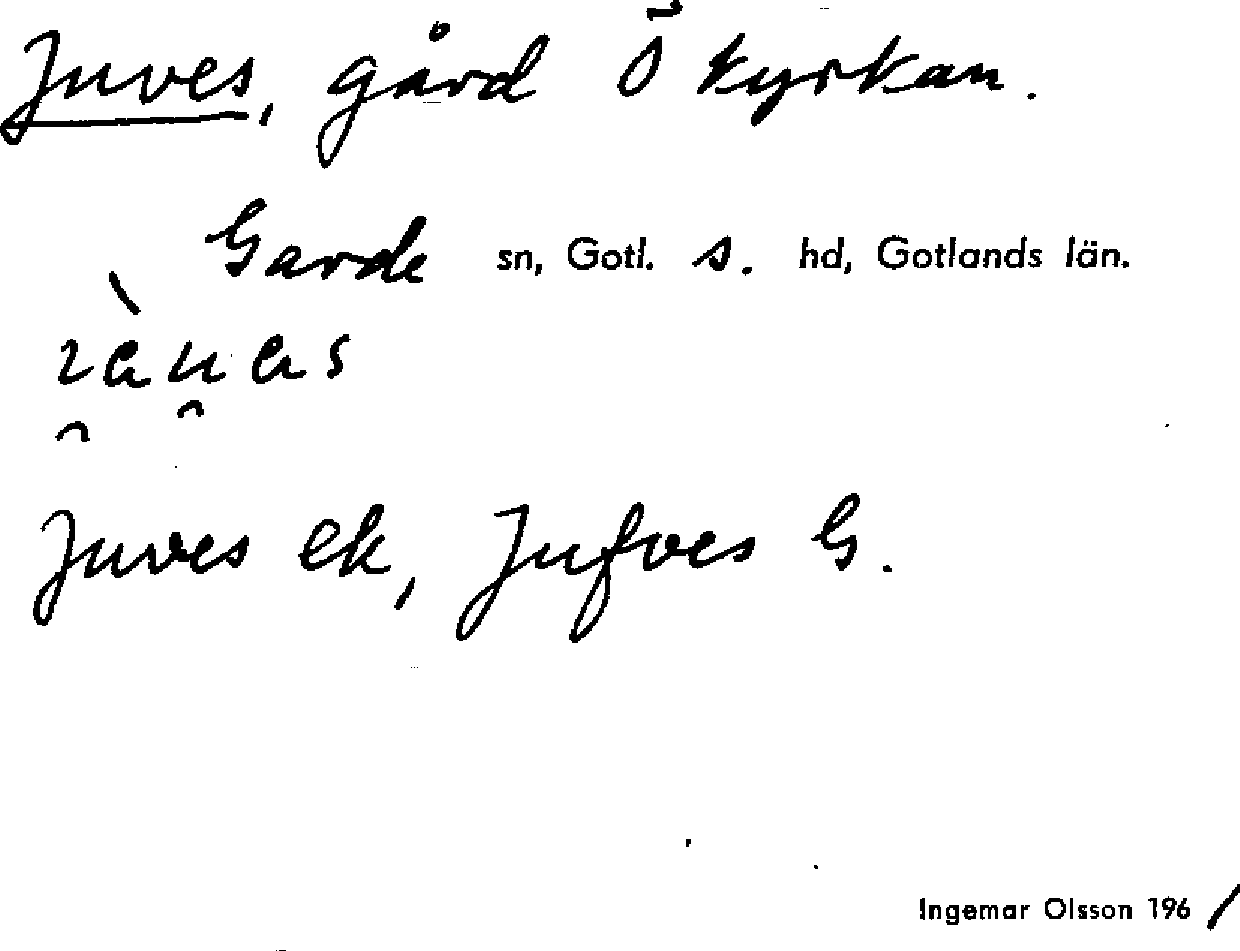 Juves, gård Ö kyrkan.
Garde sn, Gotl. s. hd, Gotlands län.
Juves ek, Jufves G.
Ingemar Olsson 1961